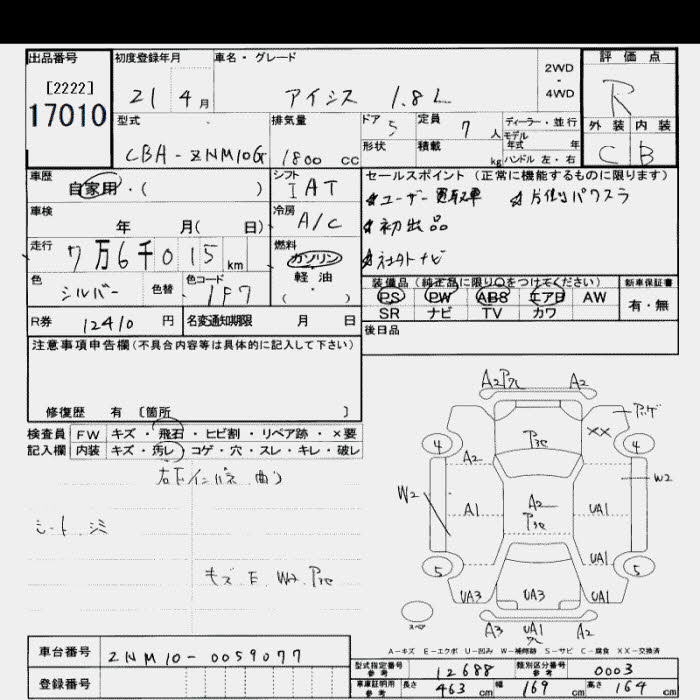 出品番号
[2222]
17010
初度登録年月
21 4 月
車名・グレード
アイシス 1.8L
2WD
・
4WD
評価点
R
外装 内装
C B
型式
CBA-ZNM10G
排気量
1800 cc
ドア 5
定員 7 人
形状
積載 kg
ディーラー・並行
モデル
年式 年
ハンドル 左・右
車歴
自家用・( )
シフト
I AT
車検
年 月( 日)
冷房
A/C
走行
7万6千015 km
燃料
ガソリン
軽・油
( ・ )
色
シルバー
色替
色コード
1F7
R券 12410 円
名変通知期限 月 日
セールスポイント (正常に機能するものに限ります)
☆ユーザー買取車 ☆片側パワスラ
☆初出品
☆社外ナビ
装備品 (純正品に限り○をつけてください)
PS PW ABS エアB AW
SR ナビ TV カワ
新車保証書
有・無
後日品
注意事項申告欄(不具合内容等は具体的に記入して下さい)
修復歴 有 〔箇所 〕
検査員
記入欄
FW キズ・飛石・ヒビ割・リペア跡・×要
内装 キズ・汚レ・コゲ・穴・スレ・キレ・破レ
シート、
キズ、E、W2、
A2 A2
4 4
××
A2
W2 W2
A1 A2 UA1
UA1
5 5
UA3 UA3 UA1
A3 UA1 A2
スペア
A-キズ E-エクボ U-凹み W-補修跡 S-サビ C-腐食 XX-交換済
車台番号 ZNM10-0059077
登録番号
型式指定番号
参考
12688
類別区分番号
参考
0003
車庫証明用
参考
長さ 463 cm 幅 169 cm 高さ 164 cm